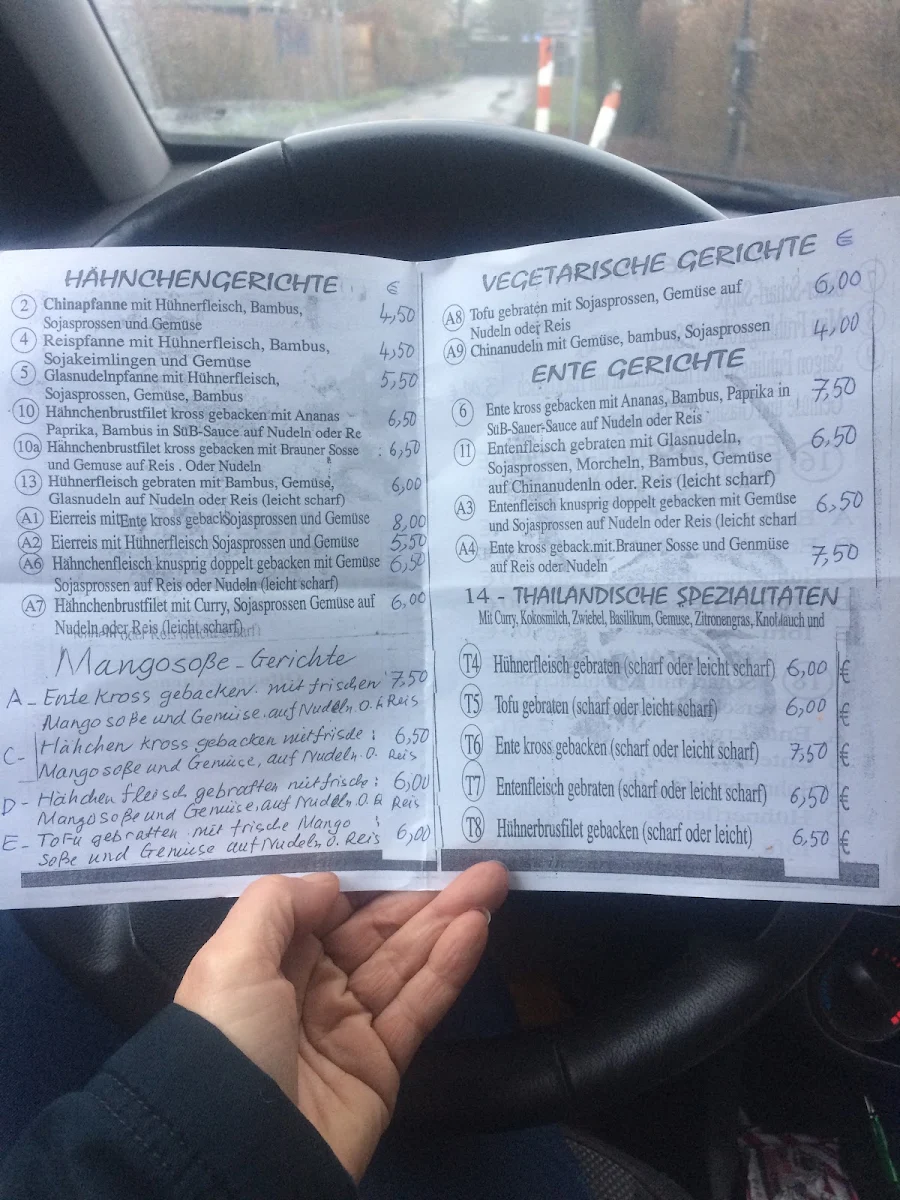 HÄHNCHENGERICHTE €
2 Chinapfanne mit Hühnerfleisch, Bambus, 4,50
Sojasprossen und Gemüse
4 Reispfanne mit Hühnerfleisch, Bambus, 4,50
Sojakeimlingen und Gemüse
5 Glasnudelnpfanne mit Hühnerfleisch, 5,50
Sojasprossen, Gemüse, Bambus
10 Hähnchenbrustfilet kross gebacken mit Ananas 6,50
Paprika, Bambus in SüB-Sauce auf Nudeln oder Re
10a Hähnchenbrustfilet kross gebacken mit Brauner Sosse : 6,50
und Gemuse auf Reis . Oder Nudeln
13 Hühnerfleisch gebraten mit Bambus, Gemüse, 6,00
Glasnudeln auf Nudeln oder Reis (leicht scharf)
A1 Eierreis mit Ente kross geback Sojasprossen und Gemüse 8,00
A2 Eierreis mit Hühnerfleisch Sojasprossen und Gemüse 5,50
A6 Hähnchenfleisch knusprig doppelt gebacken mit Gemüse 6,50
Sojasprossen auf Reis oder Nudeln (leicht scharf)
A7 Hähnchenbrustfilet mit Curry, Sojasprossen Gemüse auf 6,00
Nudeln oder Reis (leicht scharf)
Mangosoße - Gerichte
A - Ente kross gebacken mit frischen 7,50
Mangosoße und Gemüse auf Nudeln o. Reis
C - Hähchen kross gebacken mit frische : 6,50
Mangosoße und Gemüse, auf Nudeln O. Reis
D - Hähchen fleisch gebratten mit frische : 6,00
Mangosoße und Gemüse, auf Nudeln O. Reis
E - Tofu gebratten mit frische Mango 6,00
soße und Gemüse auf Nudeln O. Reis
VEGETARISCHE GERICHTE €
A8 Tofu gebraten mit Sojasprossen, Gemüse auf 6,00
Nudeln oder Reis
A9 Chinanudeln mit Gemüse, bambus, Sojasprossen 4,00
ENTE GERICHTE
6 Ente kross gebacken mit Ananas, Bambus, Paprika in 7,50
SüB-Sauer-Sauce auf Nudeln oder Reis
11 Entenfleisch gebraten mit Glasnudeln, 6,50
Sojasprossen, Morcheln, Bambus, Gemüse
auf Chinanudenln oder. Reis (leicht scharf)
A3 Entenfleisch knusprig doppelt gebacken mit Gemüse 6,50
und Sojasprossen auf Nudeln oder Reis (leicht scharf
A4 Ente kross geback.mit.Brauner Sosse und Genmüse 7,50
auf Reis oder Nudeln
14 - THAILÄNDISCHE SPEZIALITÄTEN
Mit Curry, Kokosmilch, Zwiebel, Basilikum, Gemuse, Zitronengras, Knoblauch und
T4 Hühnerfleisch gebraten (scharf oder leicht scharf) 6,00 €
T5 Tofu gebraten (scharf oder leicht scharf) 6,00 €
T6 Ente kross gebacken (scharf oder leicht scharf) 7,50 €
T7 Entenfleisch gebraten (scharf oder leicht scharf) 6,50 €
T8 Hühnerbrusfilet gebacken (scharf oder leicht) 6,50 €